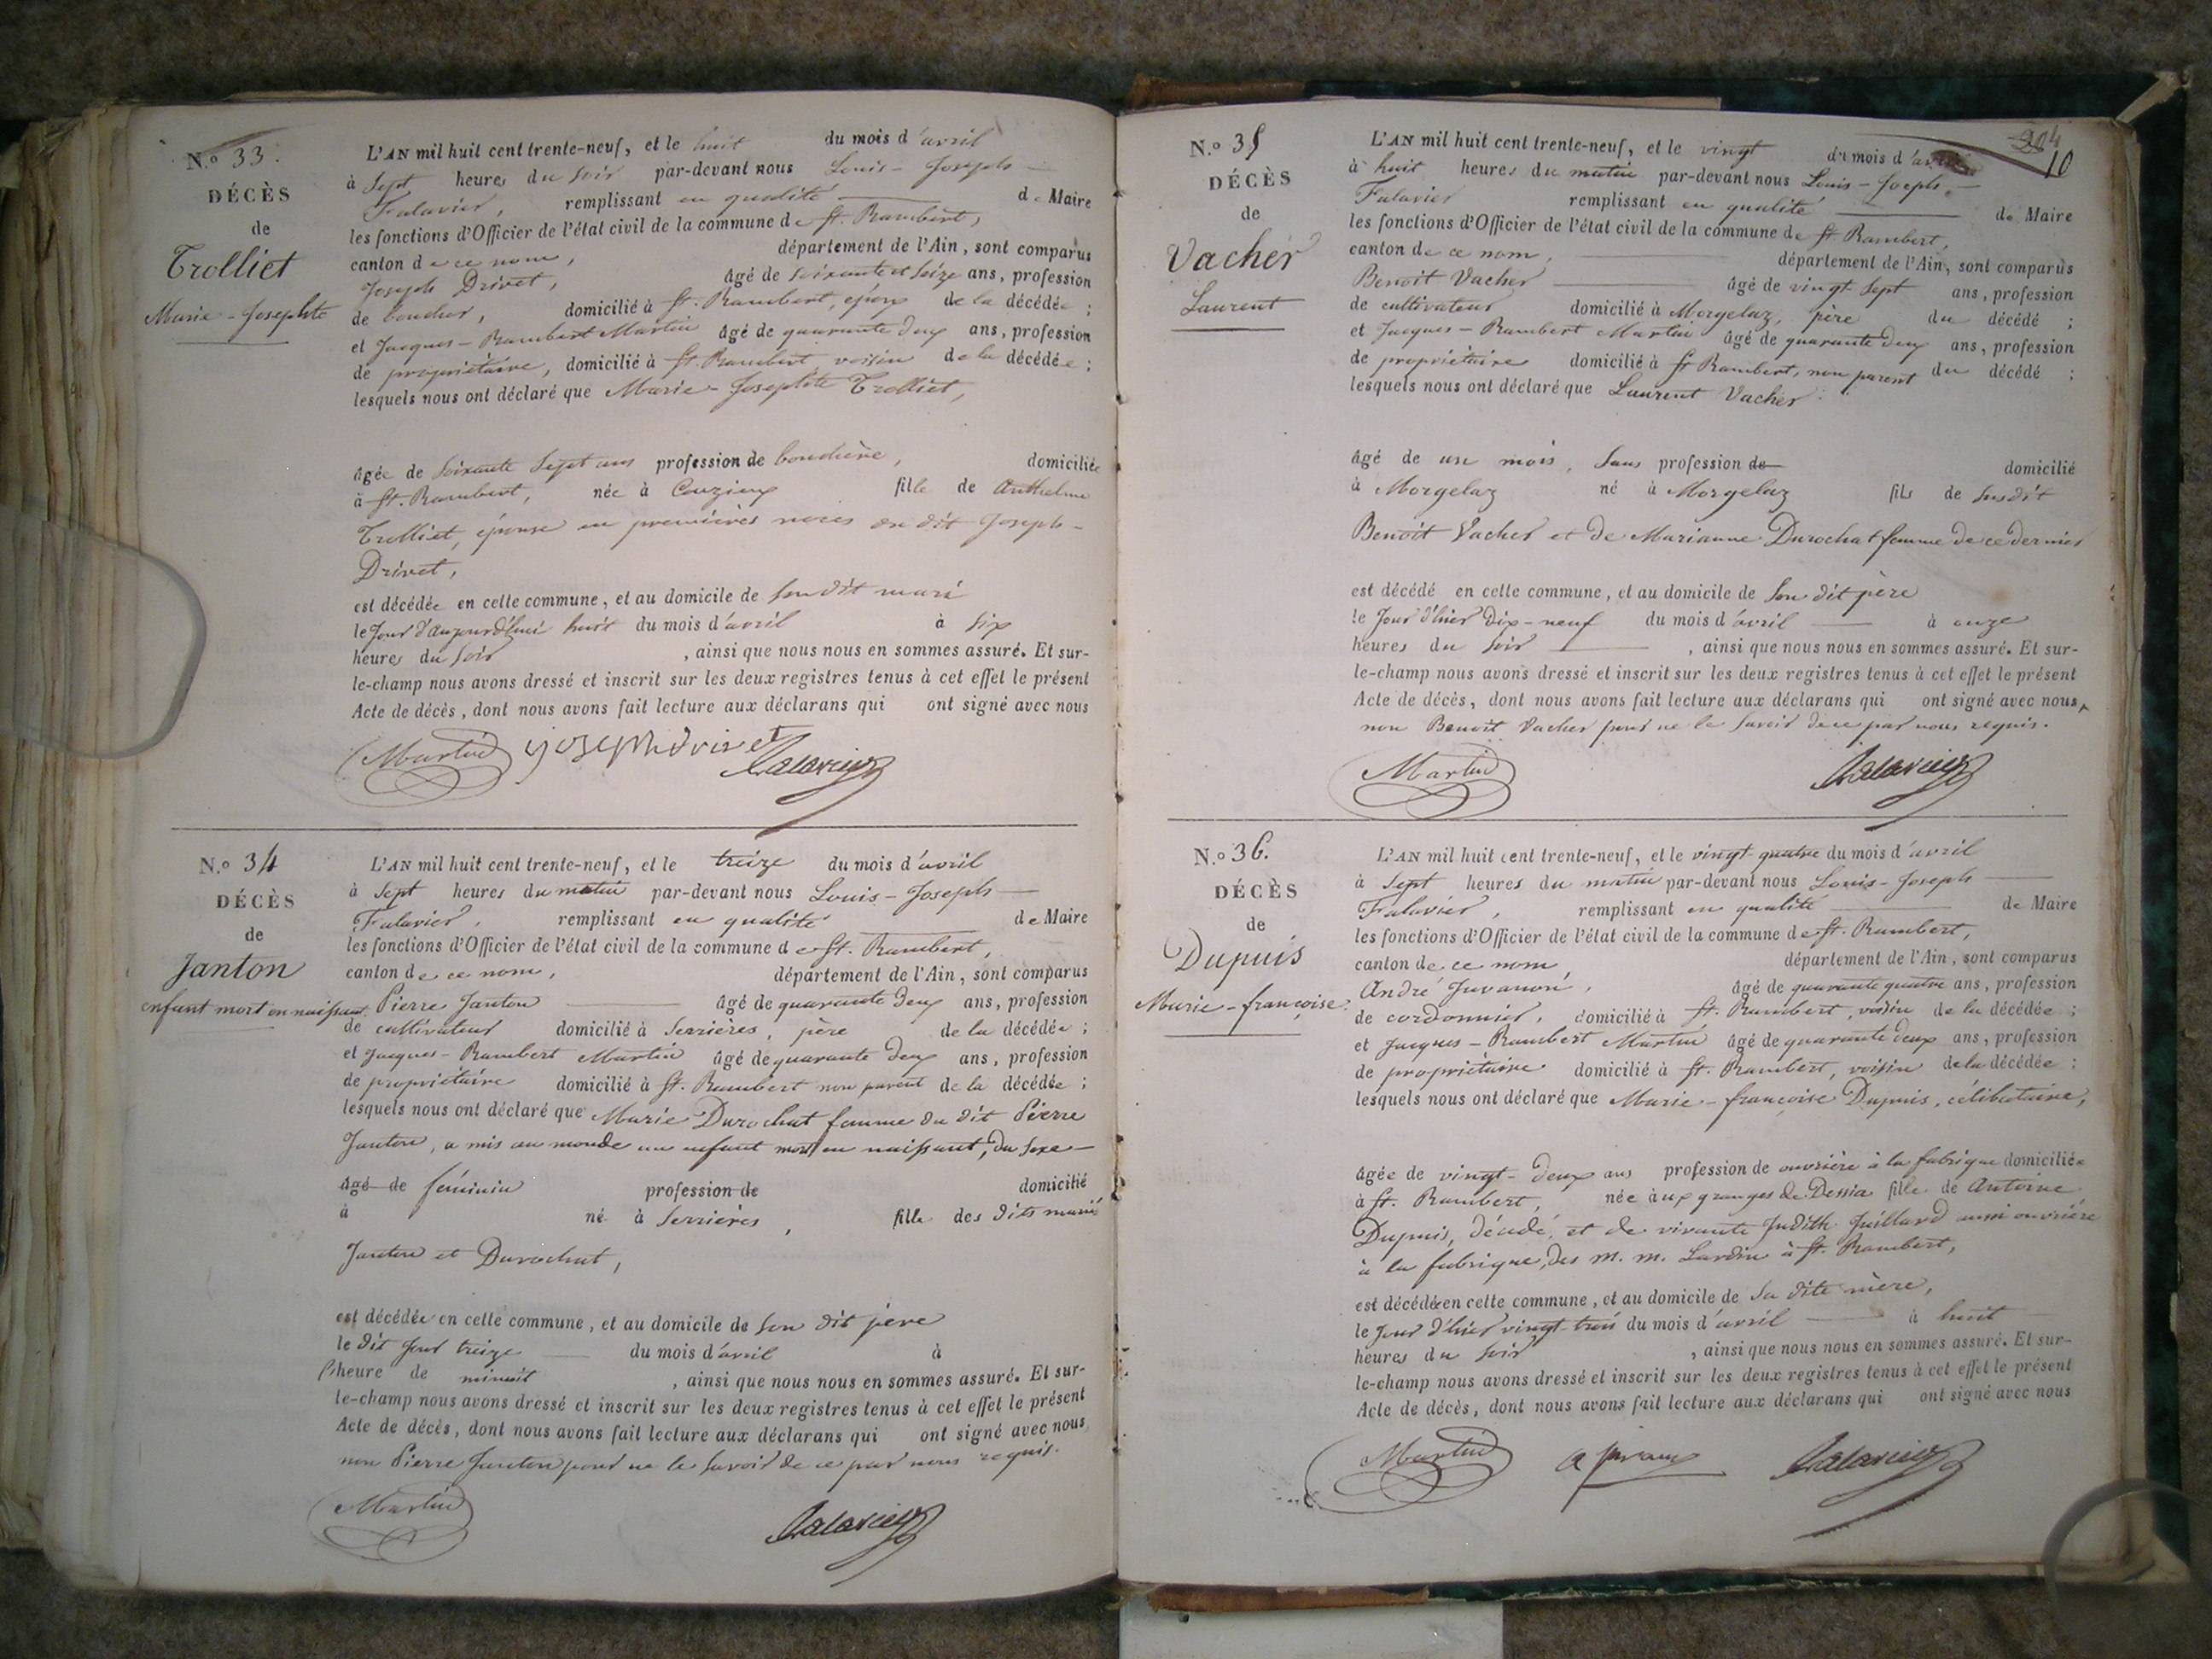 N.o 33.
DÉCÈS
de
Trolliet
Marie-Josephte
L'AN mil huit cent trente-neuf, et le huit du mois d'avril
à sept heures du soir par-devant nous Louis-Joseph
Falavier, remplissant en qualité de Maire
les fonctions d'Officier de l'état civil de la commune de St. Rambert,
canton de ce nom, département de l'Ain, sont comparus
Joseph Drivet, âgé de soixante et seize ans, profession
de boucher, domicilié à St. Rambert, époux de la décédée ;
et Jacques-Rambert Martin âgé de quarante deux ans, profession
de propriétaire, domicilié à St. Rambert voisin de la décédée ;
lesquels nous ont déclaré que Marie-Josephte Trolliet,
âgée de soixante sept ans profession de bouchère, domiciliée
à St. Rambert, née à Couzieux fille de Anthelme
Trolliet, épouse en premières noces du dit Joseph-
Drivet,
est décédée en cette commune, et au domicile de son dit mari
le jour d'aujourd'hui huit du mois d'avril à six
heures du soir, ainsi que nous nous en sommes assuré. Et sur-
le-champ nous avons dressé et inscrit sur les deux registres tenus à cet effet le présent
Acte de décès, dont nous avons fait lecture aux déclarans qui ont signé avec nous
Martin joseph drivet Falavier
N.o 34
DÉCÈS
de
Janton
enfant mort en naissant.
L'AN mil huit cent trente-neuf, et le treize du mois d'avril
à sept heures du matin par-devant nous Louis-Joseph
Falavier, remplissant en qualité de Maire
les fonctions d'Officier de l'état civil de la commune de St. Rambert,
canton de ce nom, département de l'Ain, sont comparus
Pierre Janton âgé de quarante deux ans, profession
de cultivateur domicilié à Serrières, père de la décédée ;
et Jacques-Rambert Martin âgé de quarante deux ans, profession
de propriétaire domicilié à St. Rambert non parent de la décédée ;
lesquels nous ont déclaré que Marie Durochat femme du dit Pierre
Janton, a mis au monde un enfant mort en naissant, du sexe
âgé de féminin profession de domicilié
à né à Serrières, fille des dits mariés
Janton et Durochat,
est décédée en cette commune, et au domicile de son dit père
le dit jour treize du mois d'avril à
l'heure de minuit, ainsi que nous nous en sommes assuré. Et sur-
le-champ nous avons dressé et inscrit sur les deux registres tenus à cet effet le présent
Acte de décès, dont nous avons fait lecture aux déclarans qui ont signé avec nous
non Pierre Janton pour ne le savoir de ce par nous requis.
Martin Falavier
204
10
N.o 35
DÉCÈS
de
Vacher
Laurent
L'AN mil huit cent trente-neuf, et le vingt du mois d'avril
à huit heures du matin par-devant nous Louis-Joseph
Falavier remplissant en qualité de Maire
les fonctions d'Officier de l'état civil de la commune de St. Rambert,
canton de ce nom, département de l'Ain, sont comparus
Benoit Vacher âgé de vingt sept ans, profession
de cultivateur domicilié à Morgelaz, père du décédé ;
et Jacques-Rambert Martin âgé de quarante deux ans, profession
de propriétaire domicilié à St Rambert, non parent du décédé ;
lesquels nous ont déclaré que Laurent Vacher.
âgé de un mois, sans profession de domicilié
à Morgelaz né à Morgelaz fils de susdit
Benoit Vacher et de Marianne Durochat femme de ce dernier
est décédé en cette commune, et au domicile de son dit père
le jour d'hier dix-neuf du mois d'avril à onze
heures du soir, ainsi que nous nous en sommes assuré. Et sur-
le-champ nous avons dressé et inscrit sur les deux registres tenus à cet effet le présent
Acte de décès, dont nous avons fait lecture aux déclarans qui ont signé avec nous,
non Benoit Vacher pour ne le savoir de ce par nous requis.
Martin Falavier
N.o 36.
DÉCÈS
de
Dupuis
Marie-françoise.
L'AN mil huit cent trente-neuf, et le vingt-quatre du mois d'avril
à sept heures du matin par-devant nous Louis-Joseph
Falavier, remplissant en qualité de Maire
les fonctions d'Officier de l'état civil de la commune de St. Rambert,
canton de ce nom, département de l'Ain, sont comparus
André Juvanon, âgé de quarante quatre ans, profession
de cordonnier, domicilié à St. Rambert, voisin de la décédée ;
et Jacques-Rambert Martin âgé de quarante deux ans, profession
de propriétaire domicilié à St. Rambert, voisin de la décédée ;
lesquels nous ont déclaré que Marie-françoise Dupuis, célibataire,
âgée de vingt-deux ans profession de ouvrière à la fabrique domiciliée
à St. Rambert, née aux granges de Dessia fille de Antoine
Dupuis, décédé, et de vivante Judith Juillard aussi ouvrière
à la fabrique, des m. m. Lardin à St. Rambert,
est décédée en cette commune, et au domicile de sa dite mère,
le jour d'hier vingt-trois du mois d'avril à huit
heures du soir, ainsi que nous nous en sommes assuré. Et sur-
le-champ nous avons dressé et inscrit sur les deux registres tenus à cet effet le présent
Acte de décès, dont nous avons fait lecture aux déclarans qui ont signé avec nous
Martin Falavier